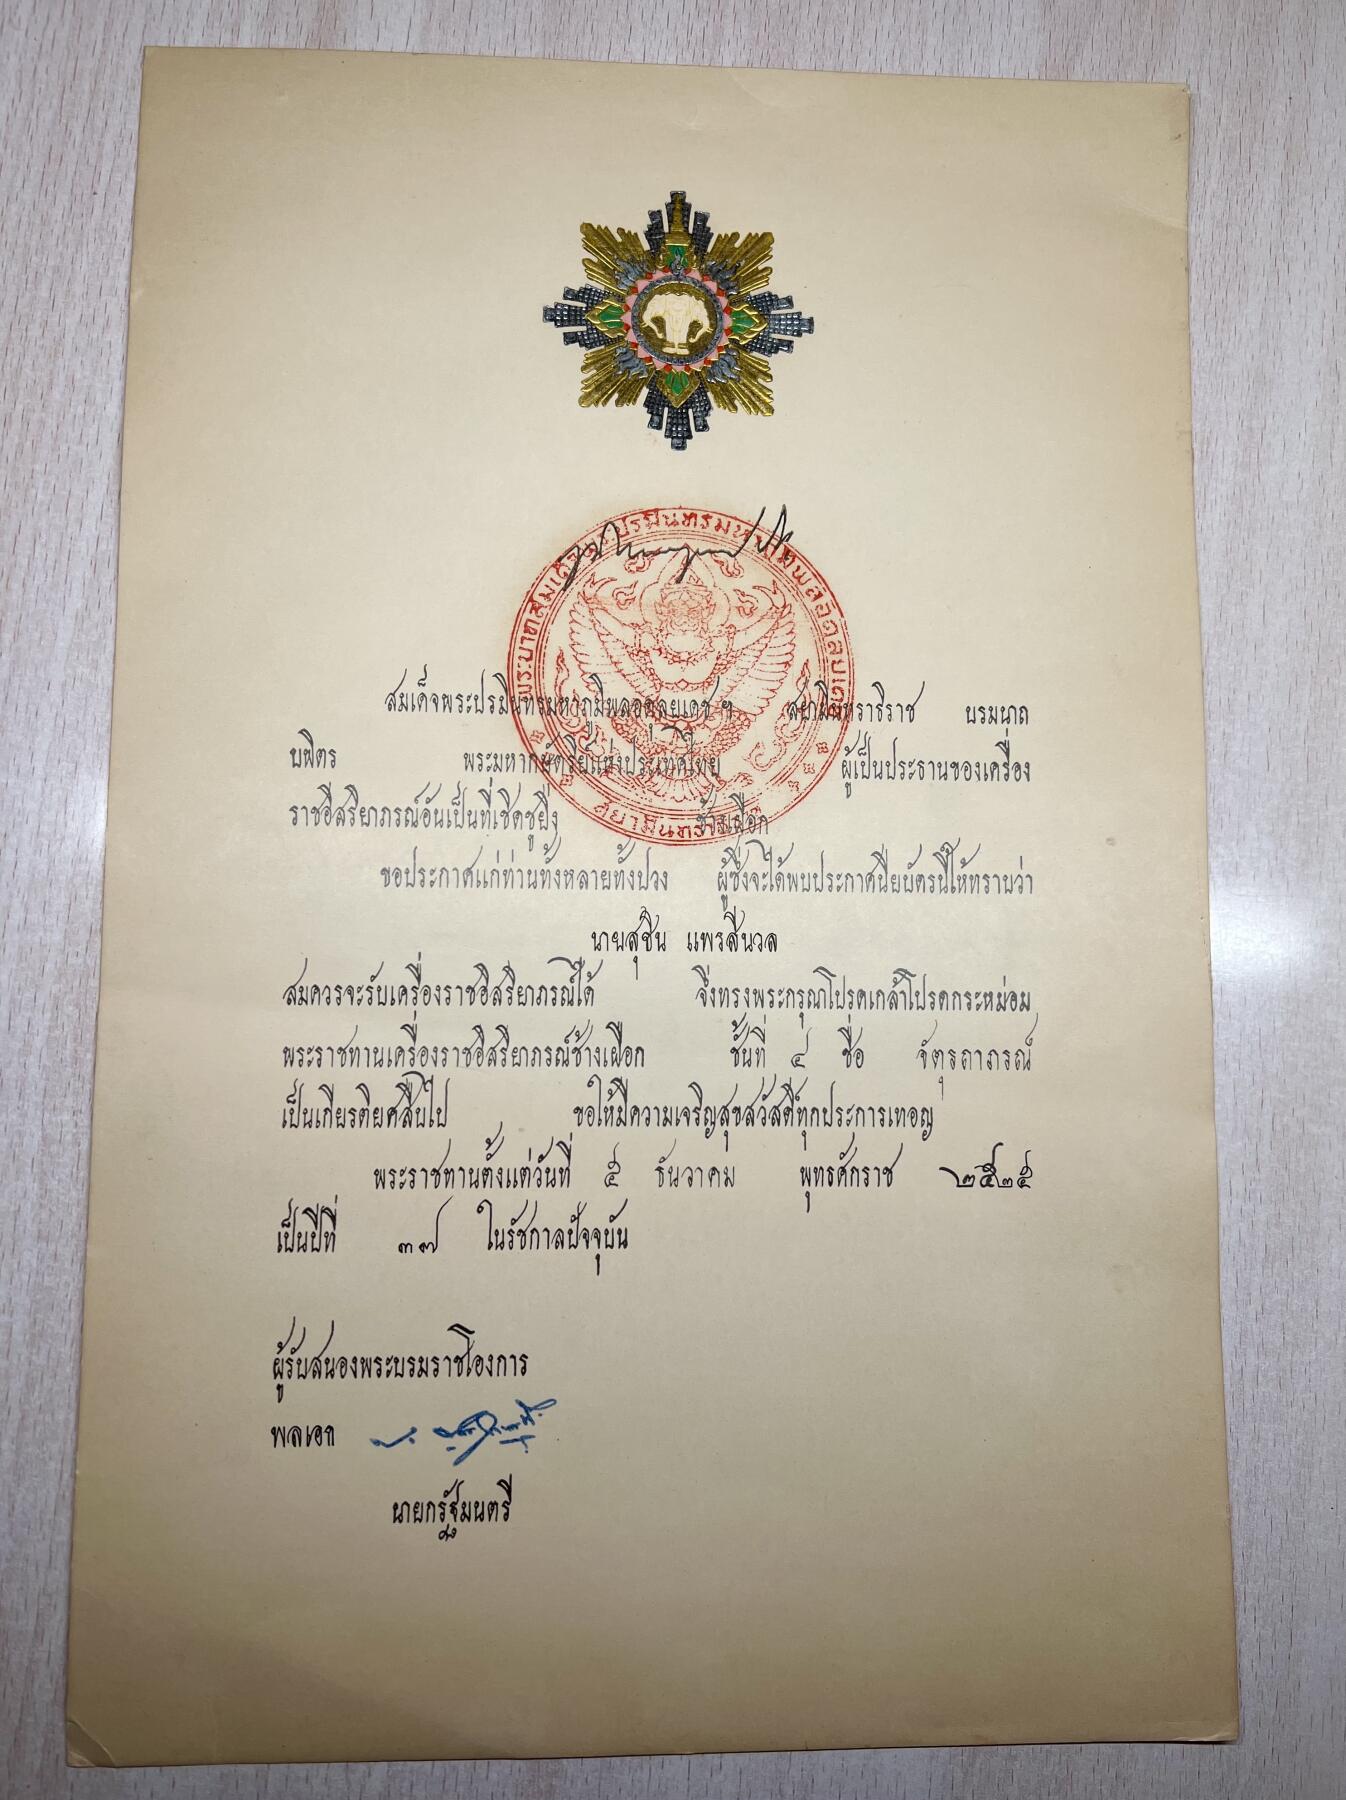 พระบาทสมเด็จพระปรมินทรมหาภูมิพลอดุลยเดช
สยามินทราธิราช
สมเด็จพระปรมินทรมหาภูมิพลอดุลยเดช ฯ สยามินทราธิราช บรมนาถ
บพิตร พระมหากษัตริย์แห่งประเทศไทย ผู้เป็นประธานของเครื่อง
ราชอิสริยาภรณ์อันเป็นที่เชิดชูยิ่ง ช้างเผือก
ขอประกาศแก่ท่านทั้งหลายทั้งปวง ผู้ซึ่งจะได้พบประกาศนียบัตรนี้ให้ทราบว่า
นายสุชิน แพรสีนวล
สมควรจะรับเครื่องราชอิสริยาภรณ์ได้ จึ่งทรงพระกรุณาโปรดเกล้าโปรดกระหม่อม
พระราชทานเครื่องราชอิสริยาภรณ์ช้างเผือก ชั้นที่ ๔ ชื่อ จัตุรถาภรณ์
เป็นเกียรติยศสืบไป ขอให้มีความเจริญสุขสวัสดิ์ทุกประการเทอญ
พระราชทานตั้งแต่วันที่ ๕ ธันวาคม พุทธศักราช ๒๕๒๕
เป็นปีที่ ๓๗ ในรัชกาลปัจจุบัน
ผู้รับสนองพระบรมราชโองการ
พลเอก
นายกรัฐมนตรี